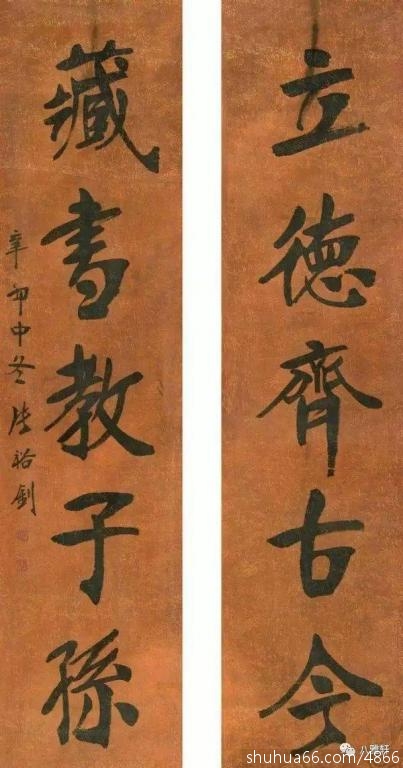 立德齊古今
藏書教子孫
辛卯中冬張裕釗
八雅轩
shuhua66.com/4866